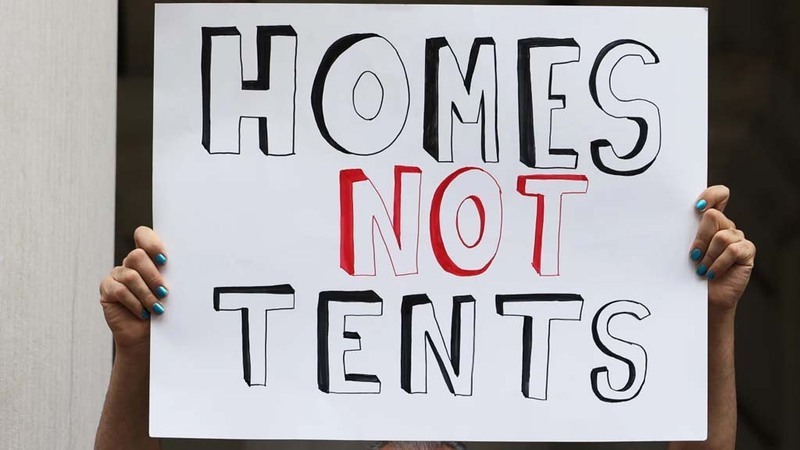 HOMES
NOT
TENTS